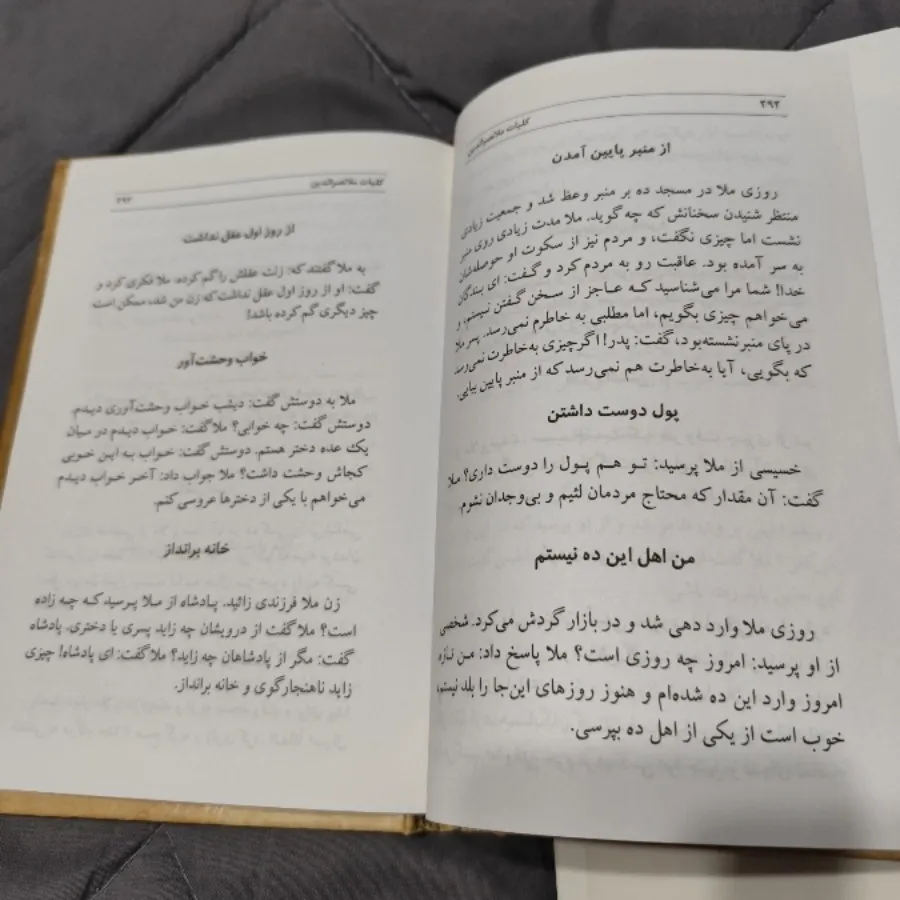 ۲۹۲
کلیات ملانصرالدین
از منبر پایین آمدن
روزی ملا در مسجد ده بر منبر وعظ شد و جمعیت زیادی
منتظر شنیدن سخنانش که چه گوید. ملا مدت زیادی روی منبر
نشست اما چیزی نگفت، و مردم نیز از سکوت او حوصله‌شان
به سر آمده بود. عاقبت رو به مردم کرد و گفت: ای بندگان
خدا! شما مرا می‌شناسید که عاجز از سخن گفتن نیستم، و
می‌خواهم چیزی بگویم، اما مطلبی به خاطرم نمی‌رسد. پسر ملا
در پای منبر نشسته بود، گفت: پدر! اگر چیزی به خاطرت نمی‌رسد
که بگویی، آیا به‌خاطرت هم نمی‌رسد که از منبر پایین بیایی.
پول دوست داشتن
خسیسی از ملا پرسید: تو هم پول را دوست داری؟ ملا
گفت: آن مقدار که محتاج مردمان لئیم و بی‌وجدان نشوم.
من اهل این ده نیستم
روزی ملا وارد دهی شد و در بازار گردش می‌کرد. شخصی
از او پرسید: امروز چه روزی است؟ ملا پاسخ داد: من تازه
امروز وارد این ده شده‌ام و هنوز روزهای این‌جا را بلد نیستم،
خوب است از یکی از اهل ده بپرسی.
کلیات ملانصرالدین
از روز اول عقل نداشت
به ملا گفتند که: زنت عقلش را گم کرده. ملا فکری کرد و
گفت: او از روز اول عقل نداشت که زن من شد، ممکن است
چیز دیگری گم کرده باشد!
خواب وحشت‌آور
ملا به دوستش گفت: دیشب خواب وحشت‌آوری دیدم.
دوستش گفت: چه خوابی؟ ملا گفت: خواب دیدم در میان
یک عده دختر هستم. دوستش گفت: خواب به این خوبی
کجاش وحشت داشت؟ ملا جواب داد: آخر خواب دیدم
می‌خواهم با یکی از دخترها عروسی کنم.
خانه برانداز
زن ملا فرزندی زائید. پادشاه از ملا پرسید که چه زاده
است؟ ملا گفت از درویشان چه زاید پسری یا دختری. پادشاه
گفت: مگر از پادشاهان چه زاید؟ ملا گفت: ای پادشاه! چیزی
زاید ناهنجارگوی و خانه برانداز.